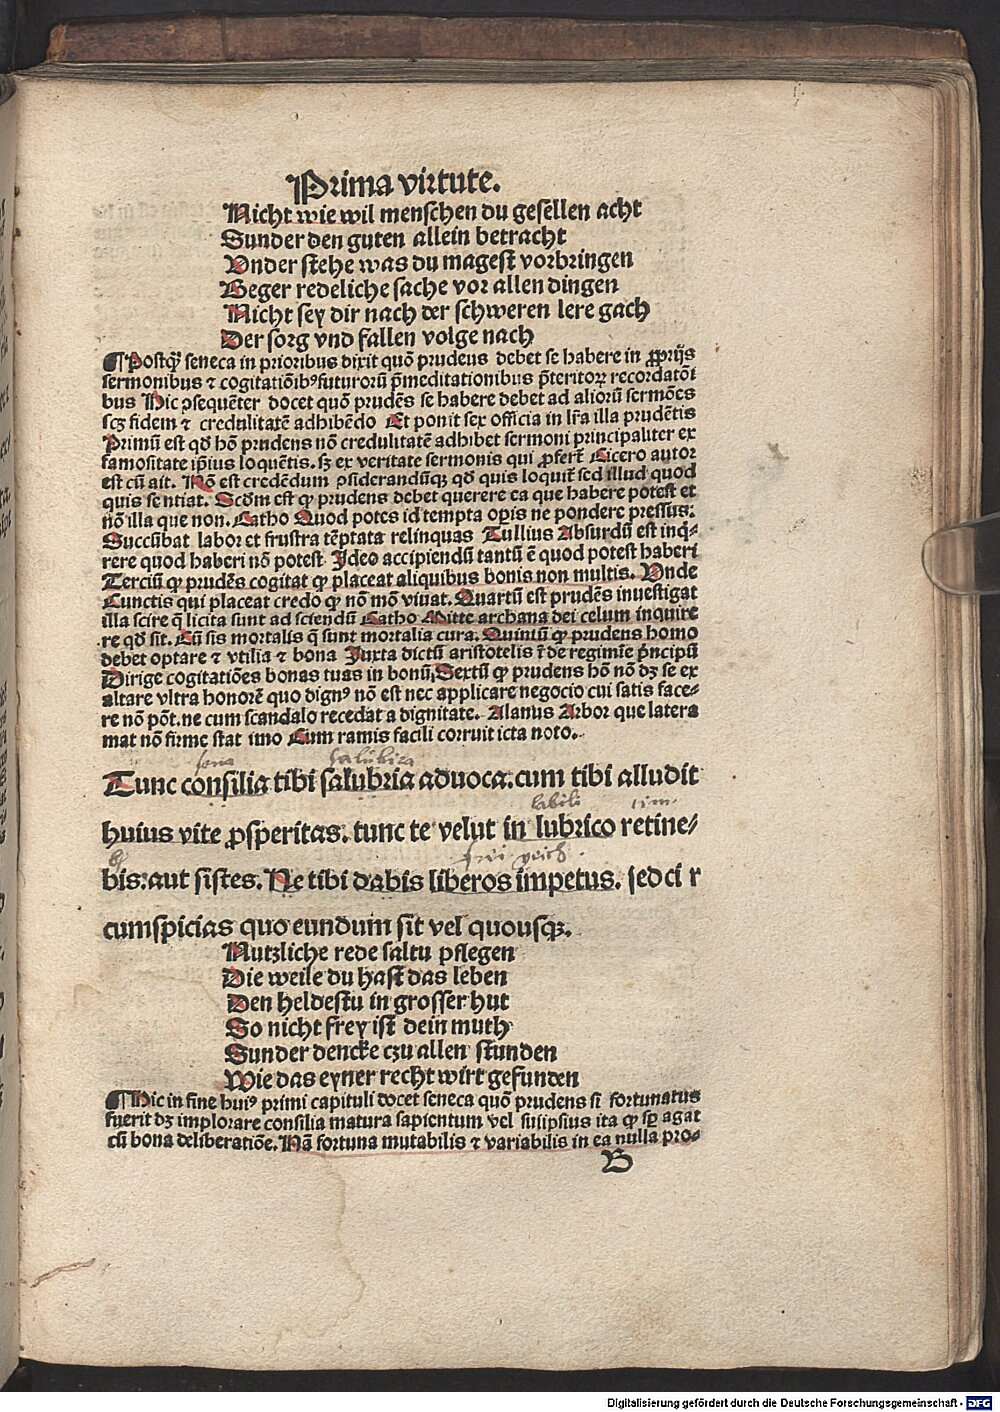 Prima virtute.
Nicht wie wil menschen du gesellen acht
Sunder den guten allein betracht
Vnder stehe was du magest vorbringen
Beger redeliche sache vor allen dingen
Nicht sey dir nach der schweren lere gach
Der sorg vnd fallen volge nach
¶ Postqȝ seneca in prioribus dixit quō prudens debet se habere in ꝓprijs
sermonibus ⁊ cogitatiōibꝰ futurorū p̄meditationibus p̄teritoꝝ recordatōi
bus Hic ꝯsequēter docet quō prudēs se habere debet ad aliorū sermōes
scȝ fidem ⁊ credulitatē adhibēdo Et ponit sex officia in lr̄a illa prudētis
Primū est qd̄ hō prudens nō credulitatē adhibet sermoni principaliter ex
famositate ip̄ius loquētis. sȝ ex veritate sermonis qui ꝓfert̄ Cicero autor
est cū ait. Nō est credēdum ꝯsiderandūqȝ qd̄ quis loquit̄ sed illud quod
quis sentiat. Scd̄m est ꝙ prudens debet querere ea que habere potest et
nō illa que non. Catho Quod potes id tempta oꝑis ne pondere pressus:
Succūbat labor et frustra tēptata relinquas Tullius Absurdū est inq̄-
rere quod haberi nō potest. Ideo accipiendū tantū ē quod potest haberi
Terciū ꝙ prudēs cogitat ꝙ placeat aliquibus bonis non multis. Vnde
Cunctis qui placeat credo ꝙ nō mō viuat. Quartū est prudēs inuestigat
illa scire q̄ licita sunt ad sciendū Catho Mitte archana dei celum inquire
re qd̄ sit. Cū sis mortalis q̄ sunt mortalia cura. Quintū ꝙ prudens homo
debet optare ⁊ vtilia ⁊ bona Juxta dictū aristotelis ī de regimīe p̄ncipū
Dirige cogitatiōes bonas tuas in bonū. Sextū ꝙ prudens hō nō dȝ se ex
altare vltra honorē quo dignꝰ nō est nec applicare negocio cui satis face-
re nō pōt. ne cum scandalo recedat a dignitate. Alanus Arbor que latera
mat nō firme stat imo Cum ramis facili corruit icta noto.
salubica
Tunc consilia tibi salubria aduoca. cum tibi alludit
labili
huius vite ꝓsperitas. tunc te velut in lubrico retine-
bis: aut sistes. Ne tibi dabis liberos impetus. sed ci r
cumspicias quo eundum sit vel quousqȝ.
Nutzliche rede saltu pflegen
Die weile du hast das leben
Den heldestu in grosser hut
So nicht frey ist dein muth
Sunder dencke czu allen stunden
Wie das eyner recht wirt gefunden
¶ Hic in fine huiꝰ primi capituli docet seneca quō prudens si fortunatus
fuerit dȝ implorare consilia matura sapientum vel suiipsius ita ꝙ sꝑ agat
cū bona deliberatiōe. Nā fortuna mutabilis ⁊ variabilis in ea nulla pro-
B
Digitalisierung gefördert durch die Deutsche Forschungsgemeinschaft - DFG